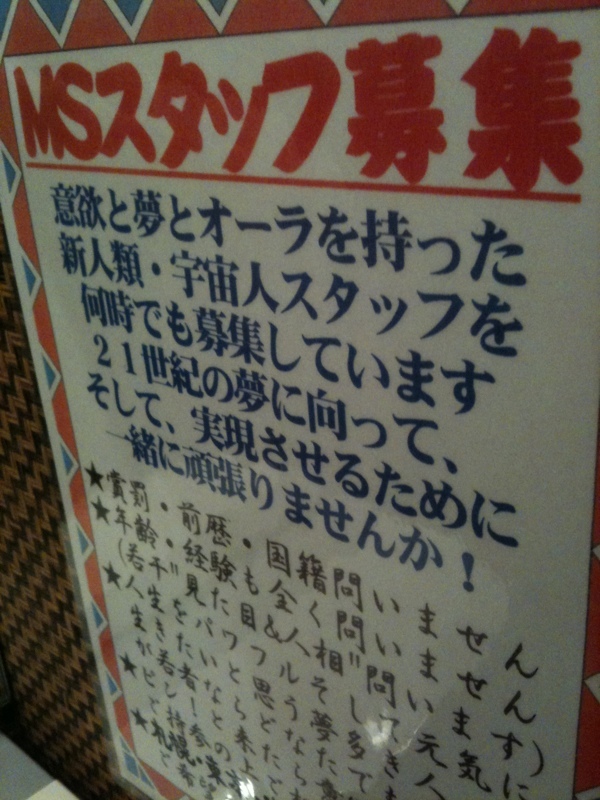 MSスタッフ募集
意欲と夢とオーラを持った
新人類・宇宙人スタッフを
何時でも募集しています
21世紀の夢に向って、
そして、実現させるために
一緒に頑張りませんか!
★賞罰・前歴・国籍問いません
★年齢・経験も全く問いません
(若干"見た目&人相"問います)
★人生をパワフルそして元気に
生きたいと思